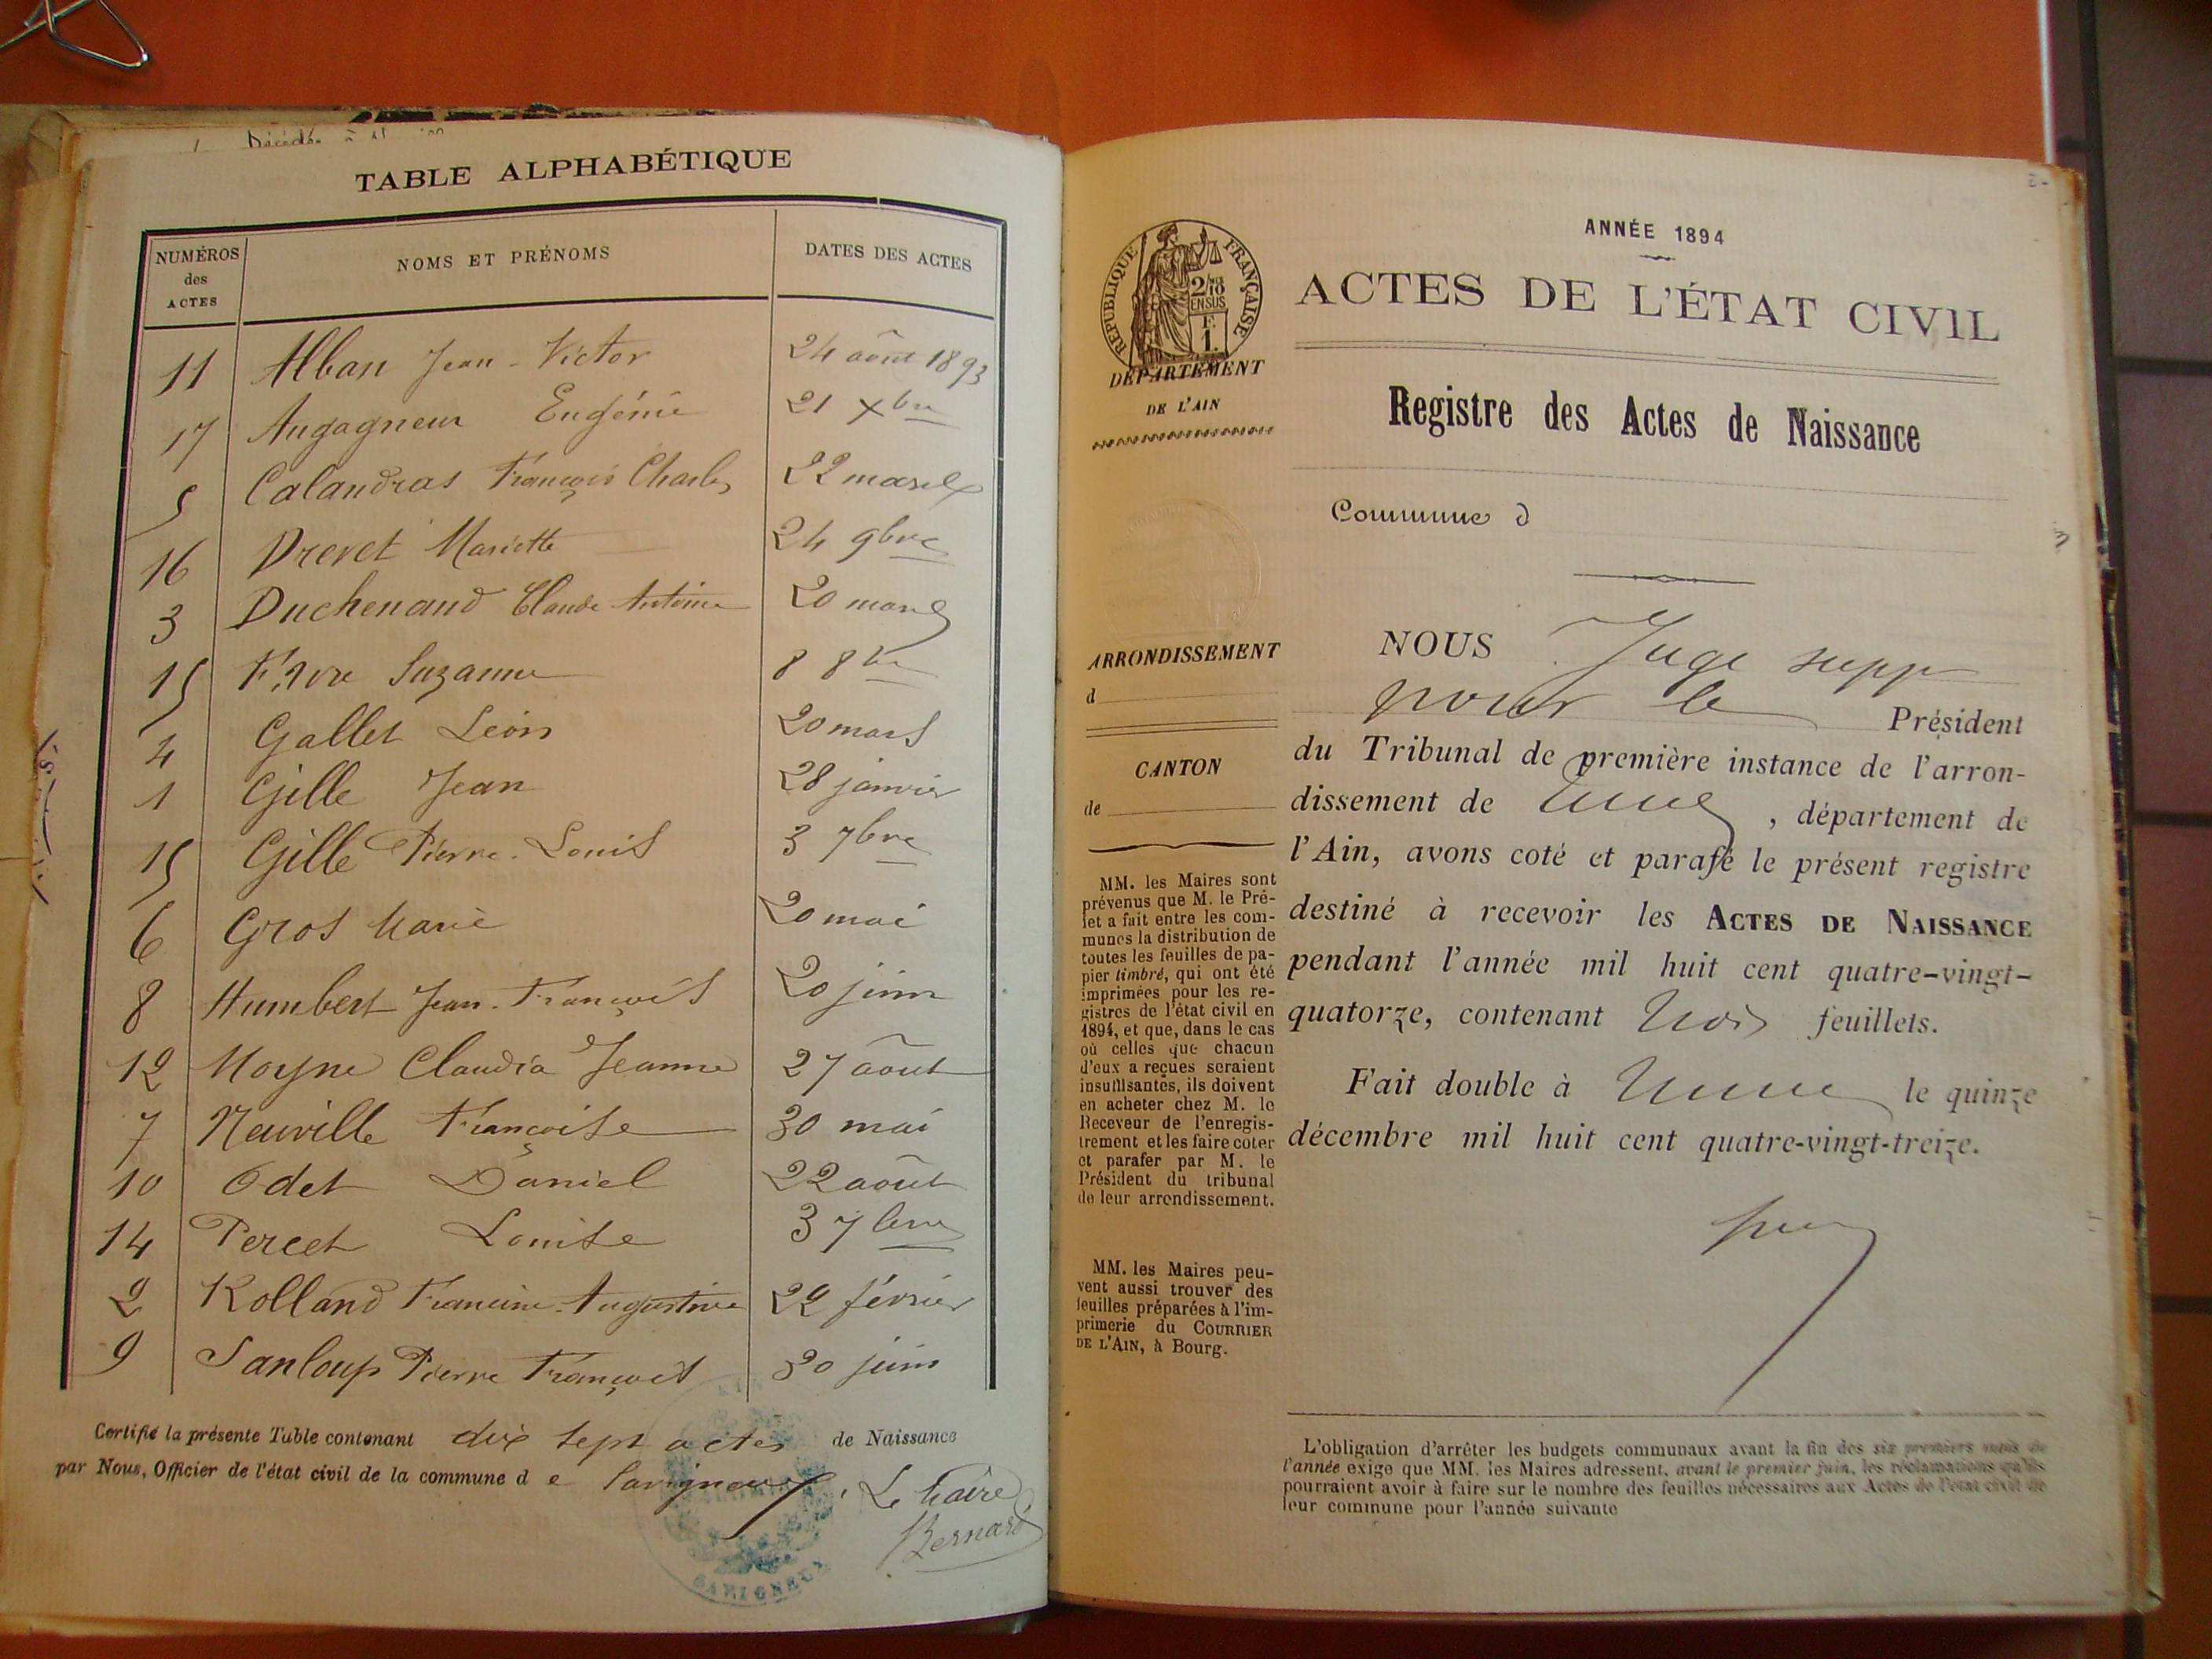 Décédé à
TABLE ALPHABÉTIQUE
NUMÉROS des ACTES NOMS ET PRÉNOMS DATES DES ACTES
11 Alban Jean-Victor 24 août 1893
17 Augagneur Eugénie 21 Xbre
5 Calandras François Charles 22 mars
16 Drevet Mariette 24 9bre
3 Duchenaud Claude Antoine 20 mars
15 Suzanne 8 8bre
4 Gallet Léon 20 mars
1 Gille Jean 28 janvier
15 Gille Pierre-Louis 3 7bre
6 Gros Marie 20 mai
8 Humbert Jean-François 20 juin
12 Moyne Claudia Jeanne 27 août
7 Neuville Françoise 30 mai
10 Odet Daniel 22 août
14 Percet Louise 3 7bre
2 Rolland Francine-Augustine 22 février
9 Sanloup Pierre François 30 juin
Certifié la présente Table contenant dix sept actes de Naissance
par Nous, Officier de l'état civil de la commune d e Savigneux, Le Maire
Bernard
SAVIGNEUX
ANNÉE 1894
ACTES DE L'ÉTAT CIVIL
RÉPUBLIQUE FRANÇAISE
2/10
EN SUS
F.
1.
DÉPARTEMENT
DE L'AIN
Registre des Actes de Naissance
Commune d
ARRONDISSEMENT
d
CANTON
de
MM. les Maires sont
prévenus que M. le Pré-
fet a fait entre les com-
munes la distribution de
toutes les feuilles de pa-
pier timbré, qui ont été
imprimées pour les re-
gistres de l'état civil en
1894, et que, dans le cas
où celles que chacun
d'eux a reçues seraient
insuffisantes, ils doivent
en acheter chez M. le
Receveur de l'enregis-
trement et les faire coter
et parafer par M. le
Président du tribunal
de leur arrondissement.
MM. les Maires peu-
vent aussi trouver des
feuilles préparées à l'im-
primerie du COURRIER
DE L'AIN, à Bourg.
NOUS Juge supp
pour le Président
du Tribunal de première instance de l'arron-
dissement de , département de
l'Ain, avons coté et parafé le présent registre
destiné à recevoir les ACTES DE NAISSANCE
pendant l'année mil huit cent quatre-vingt-
quatorze, contenant trois feuillets.
Fait double à le quinze
décembre mil huit cent quatre-vingt-treize.
L'obligation d'arrêter les budgets communaux avant la fin des six premiers mois de
l'année exige que MM. les Maires adressent, avant le premier juin, les réclamations qu'ils
pourraient avoir à faire sur le nombre des feuilles nécessaires aux Actes de l'état civil de
leur commune pour l'année suivante